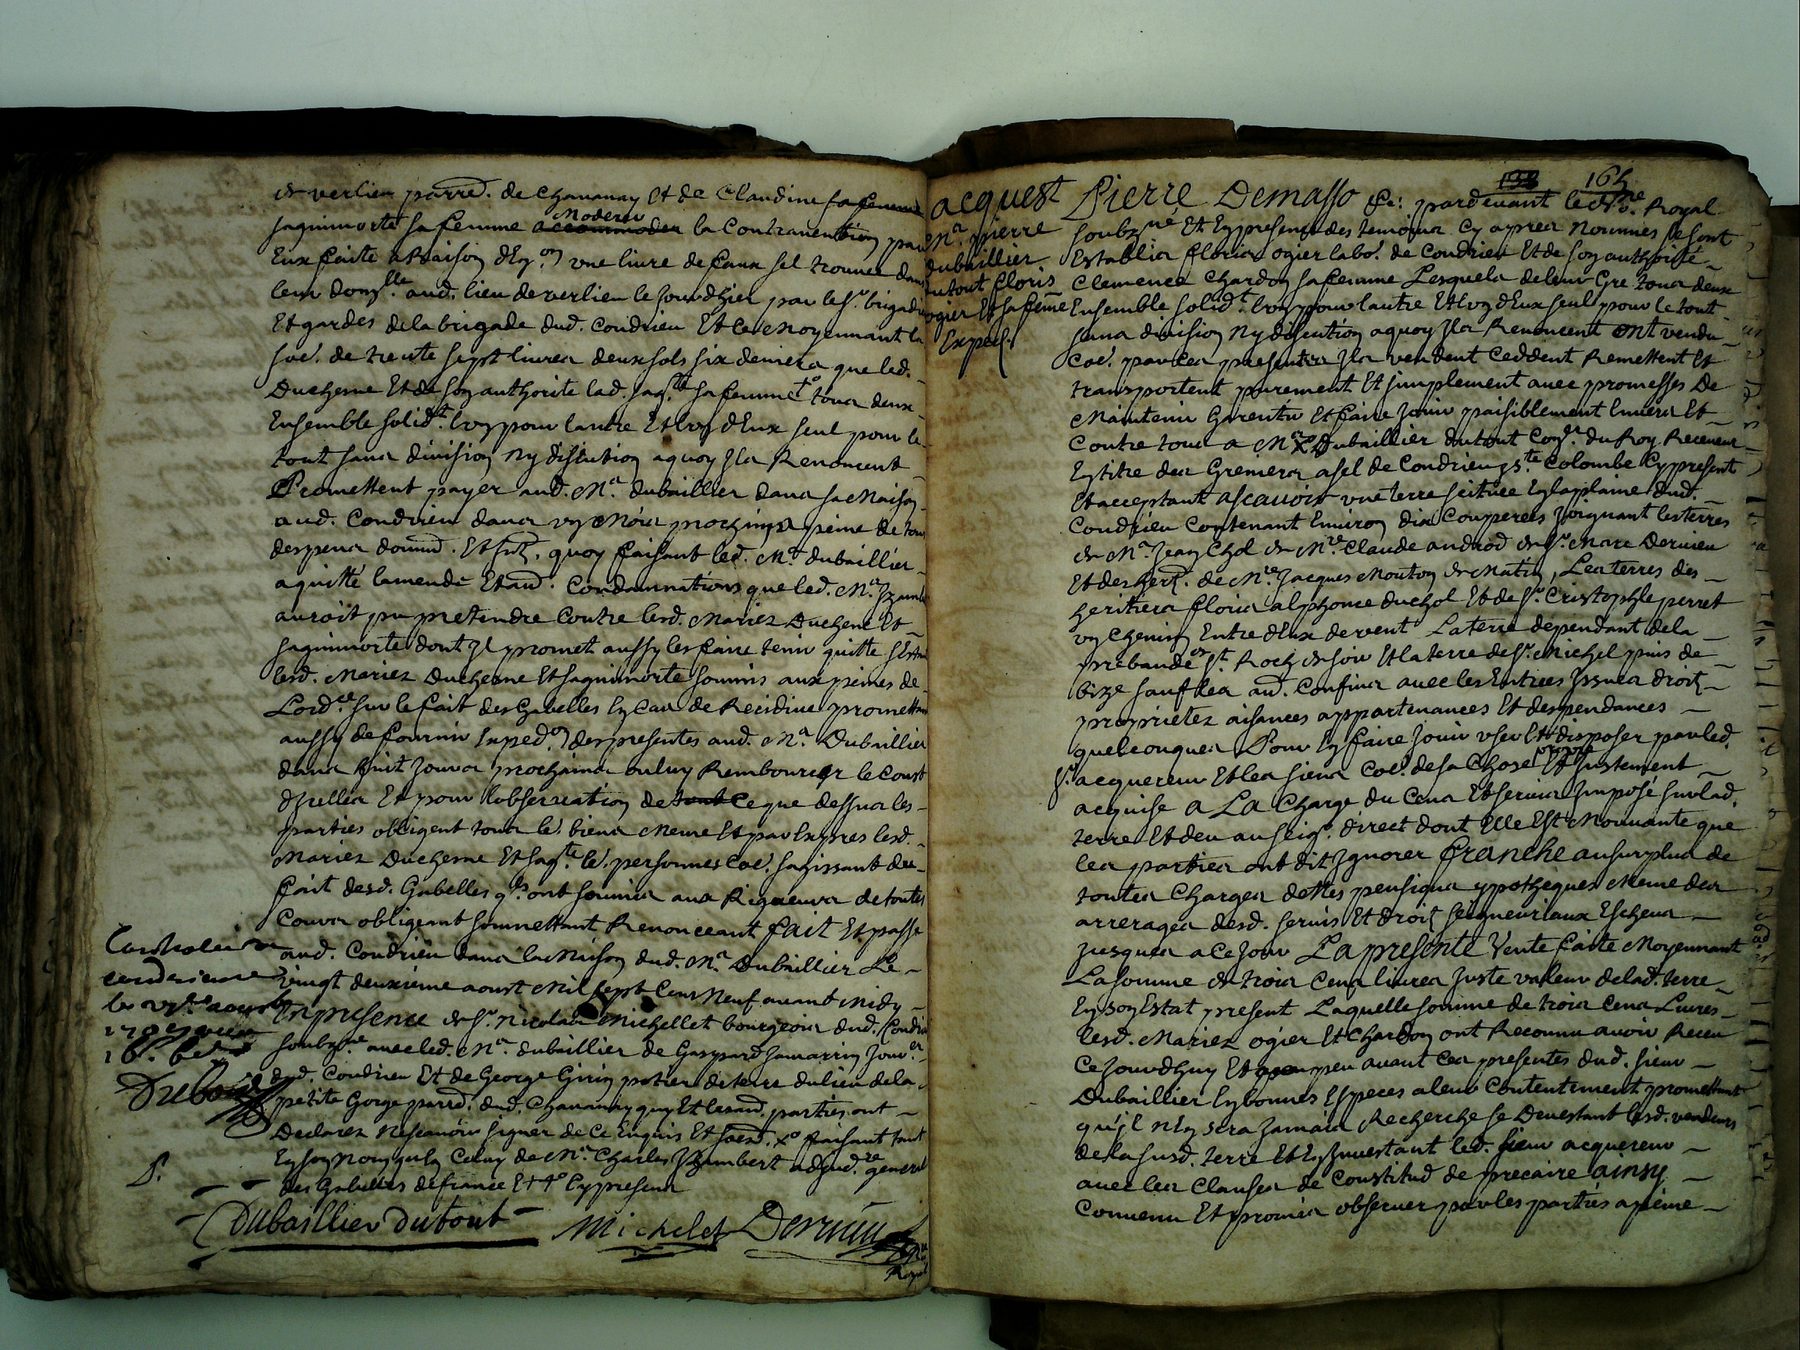 de verlieu parrd. de chananay Et de Claudine sa femme
Jaquimorte sa femme accommoder Moderer la Contravention par
Eux faite a Raison d'Eon. une livre de faux sel trouvée dans
leur domlle. aud. lieu de verlieu le Jourdhier par le sr. brigadier
Et gardes de la brigade dud. Condrieu Et Ce Moyennant la
soe. de trente sept livres deux sols six deniers que led.
Duchesne Et de son authorite lad. Jaqte. sa femme tous deux
Ensemble solidt. lun pour lautre Et lun d'Eux seul pour le
tout sans division ny discution a quoy Ils Renoncent
Promettent payer aud. Mr. dubaillier dans sa Maison
aud. Condrieu dans un Mois prochain a peine de tous
despens domd. Et Intz. quoy faisant led. Mr. dubaillier
a quitté lamende Et aud. Condamnations que led. Mr. Izambert
auroit pu pretendre Contre lesd. Mariez Duchene Et
Jaquimorte dont Il promet aussy les faire tenir quitte
lesd. Mariez Duchesne Et Jaquimorte soumis aux peines de
Lordce. sur le fait des Gabelles En Cas de Recidive promettant
aussy de fournir Expedon. des presentes aud. Mr. Dubaillier
dans huit Jours prochains ou luy Rembourcer le Coust
d'Icelles Et pour lobservation de tout Ce que dessus les
parties obligent tous le. biens Meme Et par Expres lesd.
Mariez Duchesne Et Jaqte. le. personnes Coe. sagissant du
fait desd. Gabelles qls. ont soumis aux Rigueurs de toutes
Cours obligeant soumettant Renonceant fait Et passé
aud. Condrieu dans la Maison dud. Mr. Dubaillier Le
vingt deuxieme aoust Mil sept Cens Neuf avant Midy
En presence de sr. Nicolas Michellet bourgeois dud. Condrieu
soubzne. avec led. Mr. dubaillier de Gaspard Jamarrin Jourer.
dud. Condrieu Et de George Girin potier de terre du lieu de la
petite Gorge parrd. dud. Chananay quy Et lesd. parties ont
Declarez Nescavoir signer de Ce Enquis Et faisant tant
En son Nom qu'En Celuy de Mr. Charles Izambert adjudre. general
des Gabelles de france Et Cy present
Controlé a
condrieu
le aoust
1709
Dubaillier dutout Michelet Dervieu
Royal
138 165
acquest
Mr. pierre
dubaillier
dutout floris
ogier Et sa feme
Exped.
Pierre Demasso &c: pardevant le Nre. Royal
soubzné Et En presence des temoins Cy apres Nommes se sont
Establis floris ogier labor. de Condrieu Et de son authorité
Clemence Chardon sa femme Lesquels de leur Gre tous deux
Ensemble solidt. lun pour lautre Et lun d'Eux seul pour le tout
sans division Ny discution a quoy Ils Renoncent ont vendu
Coe. par Ces presentes Ils vendent Ceddent Remettent Et
transportent purement Et simplement avec promesses De
Maintenir Garentir Et faire Jouir paisiblement Envers Et
Contre tous a Mr. Dubaillier dutout Conr. du Roy Receveur
En titre des Greniers a sel de Condrieu, ste. Colombe Cy present
Et acceptant ascavoir une terre scituée En la plaine dud.
Condrieu Contenant Environ dix Couperees Joignant les terres
de Mr. Jean Chol de Mre. Claude androd de sr. Marc Dervieu
Et des herts. de Mre. Jacques Mouton de Matin, Les terres des
heritiers floris alphonce duchol Et de sr. Cristophle perret
un Chemin Entre d'Eux de vent La terre dependant de la
prebande de St. Roch de soir Et la terre de sr. Michel puis de
bize sauf les aud. Confins avec les Entrees Issues droits
proprietez aisances appartenances Et despendances
quelconques Pour En faire Jouir user Et disposer par led.
sr. acquereur Et les siens Coe. de sa Chose propre Et Justement
acquise A La Charge du Cens Et servis Imposé sur lad.
terre Et deu au seigr. direct dont Elle Est Mouvante que
les parties ont dit Ignorer franche au surplus de
toutes Charges dettes pensions ypotheques Meme des
arrerages desd. servis Et droits seigneuriaux Escheus
Jusques a Ce Jour La presente Vente faite Moyennant
La somme de trois Cens livres Juste valeur de lad. terre
En son Estat present Laquelle somme de trois Cens Livres
lesd. Mariez ogier Et Chardon ont Reconnu avoir Receu
Ce Jourdhuy Et peu avant Ces presentes dud. sieur
Dubaillier En bonnes Especes a leur Contentement promettant
qu'il N'En sera Jamais Recherché se Devestant lesd. vendeurs
de la susd. terre Et En Investant led. sieur acquereur
avec les Clauses de Constitud de precaire ainsy
Convenu Et promis observer par les parties a peine